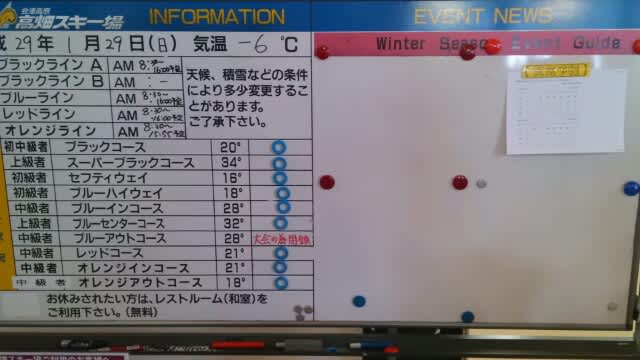 会津高原
高畑スキー場 INFORMATION
成29年1月29日(日) 気温 -6℃
ブラックライン A AM 8:30~16:00予定
ブラックライン B AM : -
ブルーライン AM 8:30~16:00予定
レッドライン AM 8:30~16:00予定
オレンジライン AM 8:30~15:55予定
天候、積雪などの条件
により多少変更するこ
とがあります。
ご了承下さい。
初中級者 ブラックコース 20°
上級者 スーパーブラックコース 34°
初級者 セフティウェイ 16°
初級者 ブルーハイウェイ 18°
中級者 ブルーインコース 28°
上級者 ブルーセンターコース 32°
中級者 ブルーアウトコース 28° 大会の為閉鎖
中級者 レッドコース 21°
中級者 オレンジインコース 21°
中級者 オレンジアウトコース 18°
お休みされたい方は、レストルーム(和室)を
ご利用下さい。(無料)
EVENT NEWS
Winter Season Event Guide